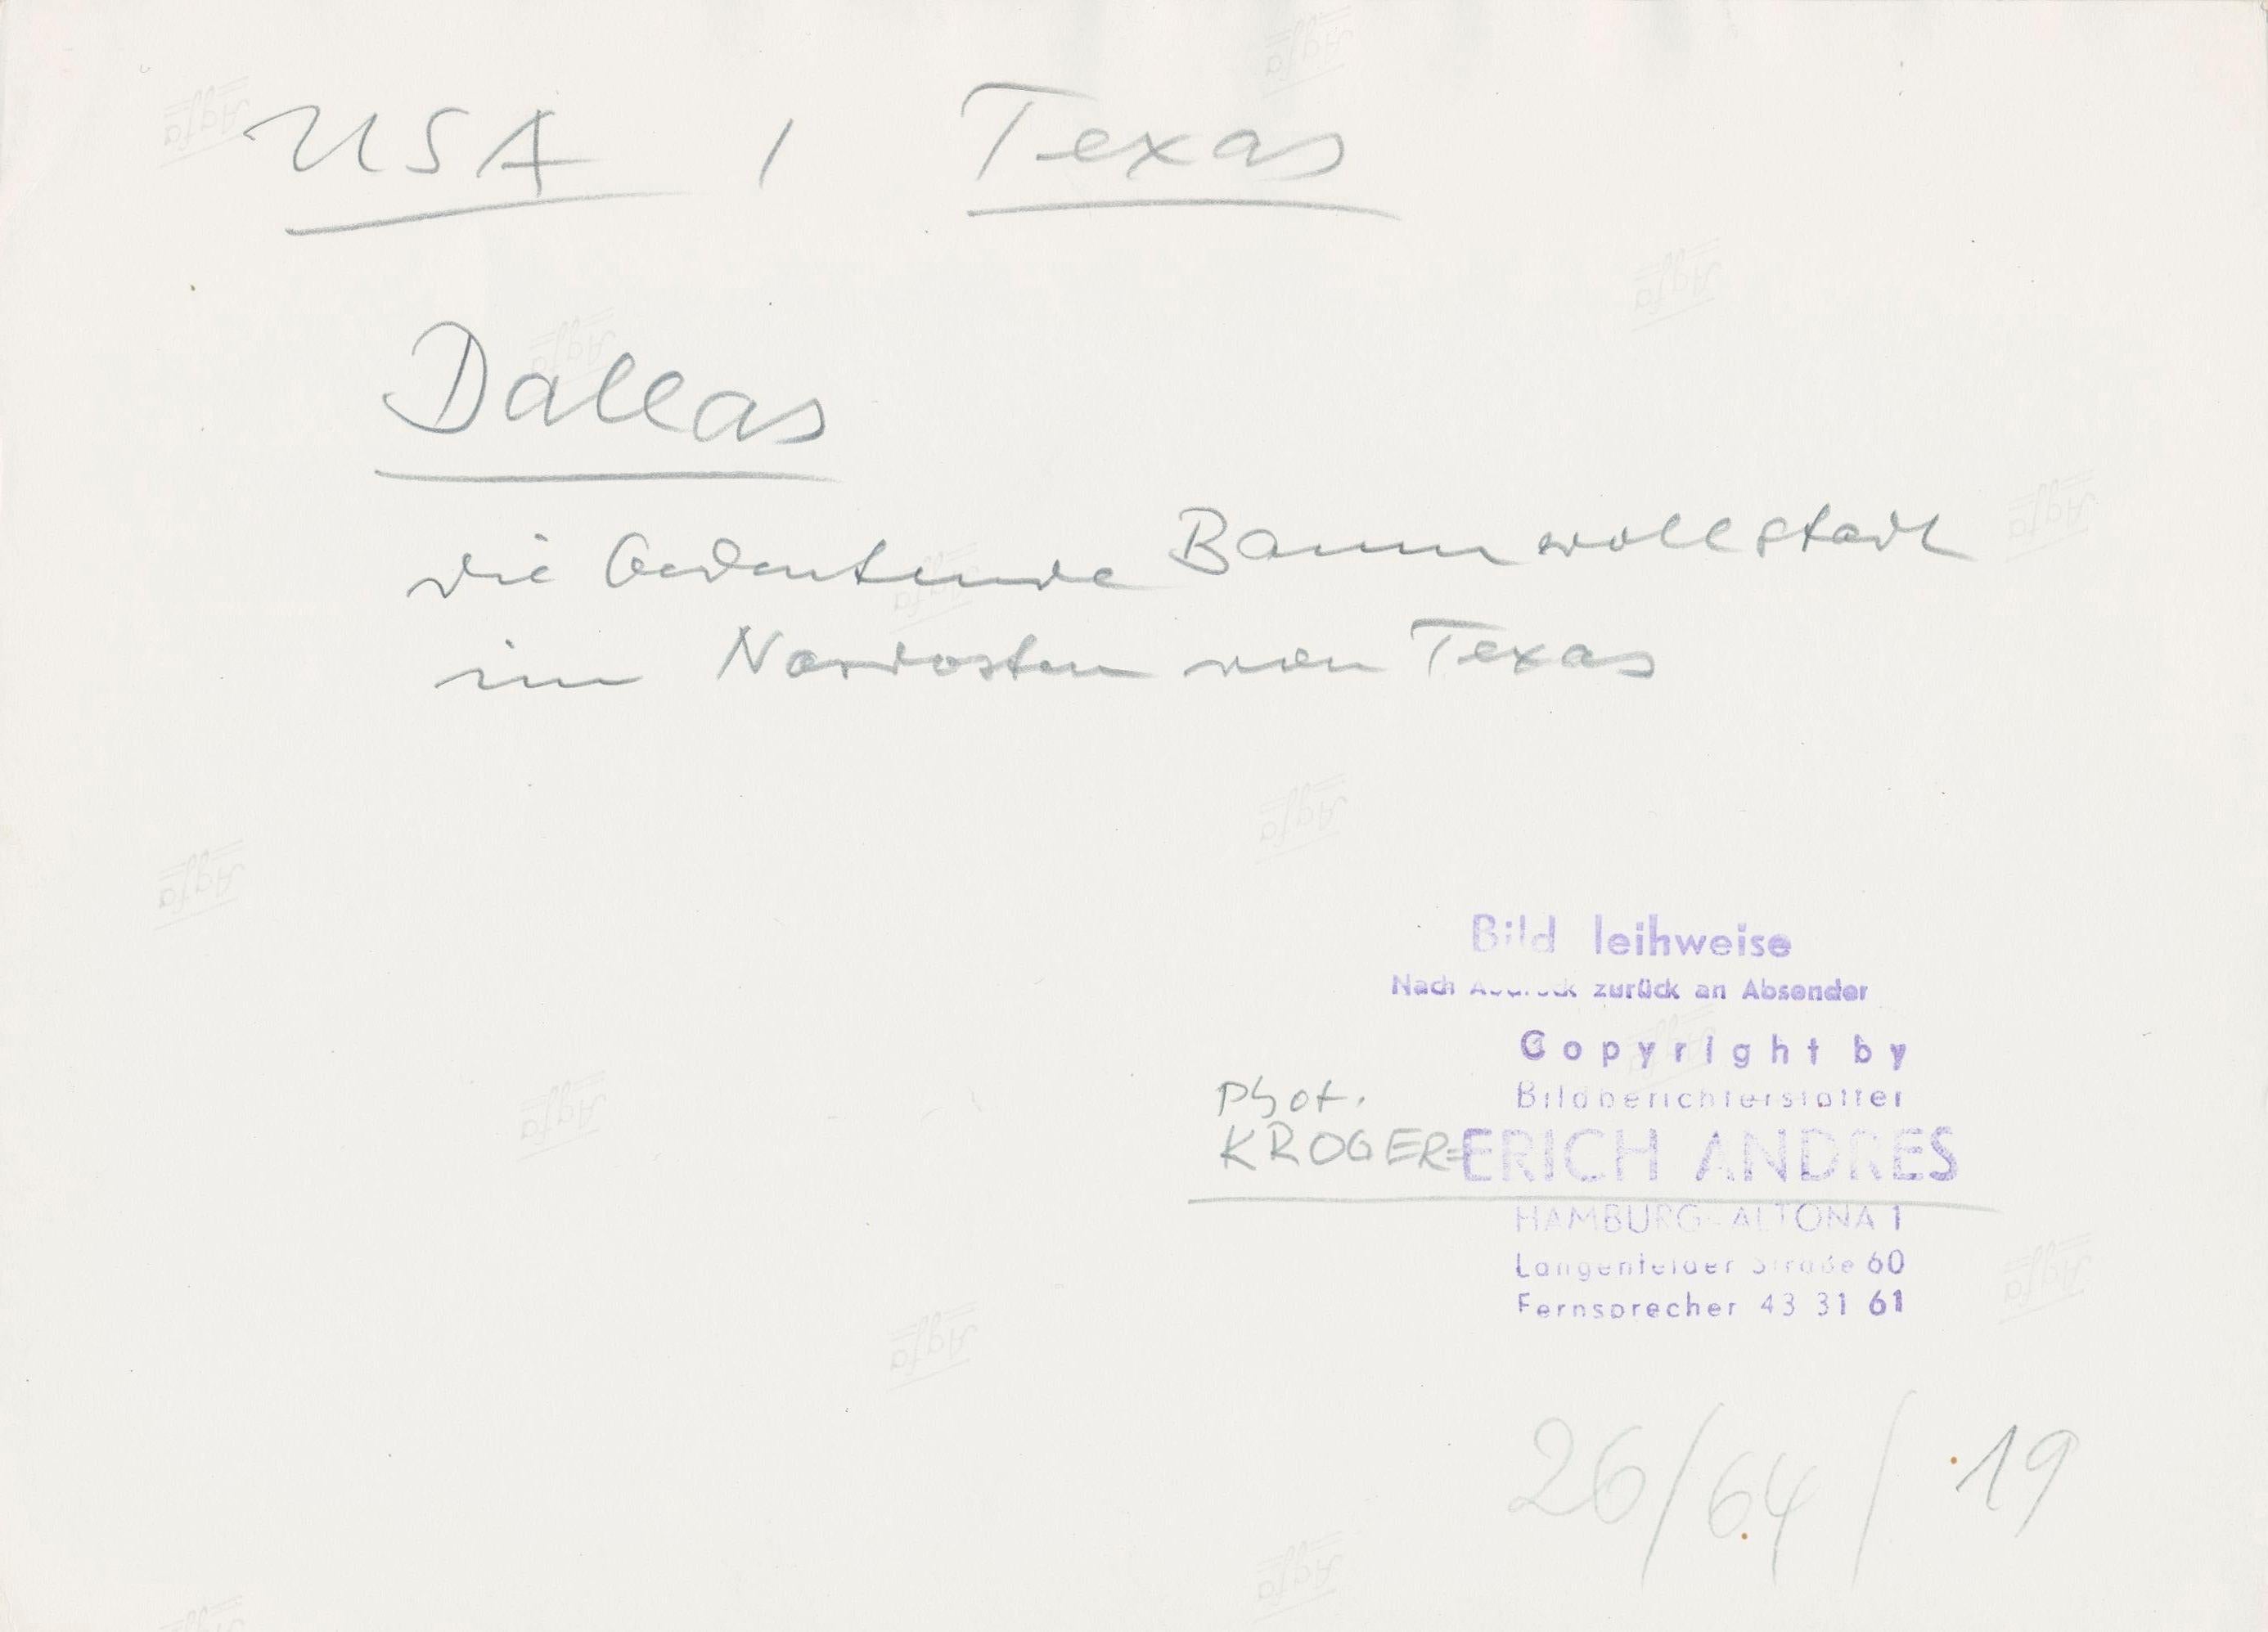 USA / Texas
Dallas
die bedeutende Baumwollstadt
im Nordosten von Texas
Bild leihweise
Nach Abdruck zurück an Absender
Copyright by
Bildberichterstatter
Phot.
KROGER=ERICH ANDRES
HAMBURG-ALTONA 1
Langenfelder Straße 60
Fernsprecher 43 31 61
26/64/19